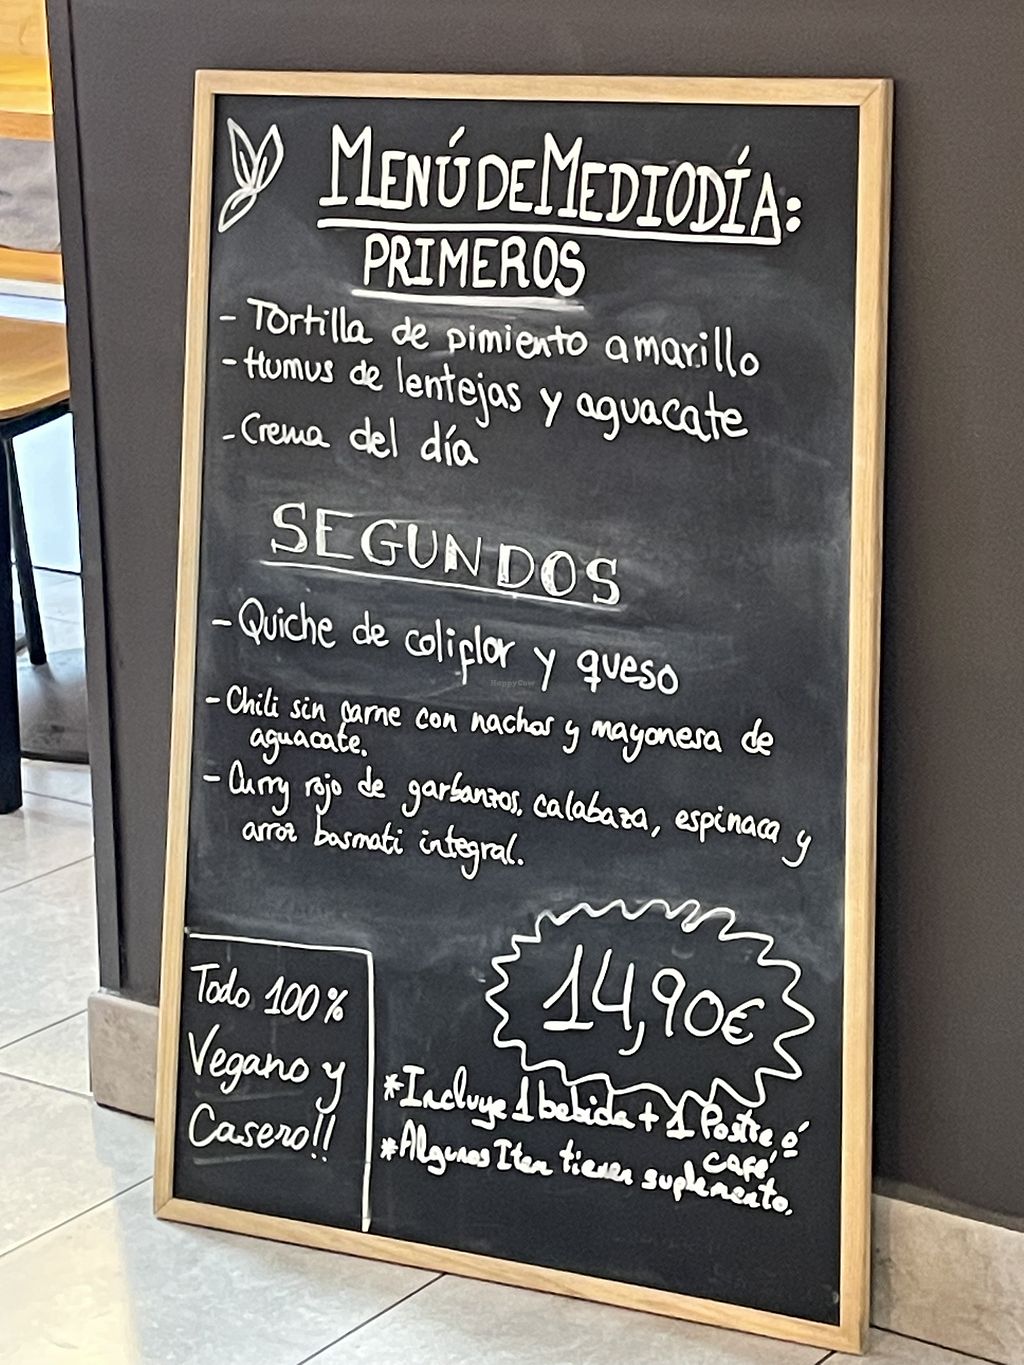 MENÚ DE MEDIODÍA:
PRIMEROS
- Tortilla de pimiento amarillo
- Humus de lentejas y aguacate
- Crema del día
SEGUNDOS
- Quiche de coliflor y queso
HappyCow
- Chili sin carne con nachos y mayonesa de
aguacate.
- Curry rojo de garbanzos, calabaza, espinaca y
arroz basmati integral.
14,90€
Todo 100%
Vegano y
Casero!!
*Incluye 1 bebida + 1 Postre ó
café
*Algunos Item tienen suplemento.